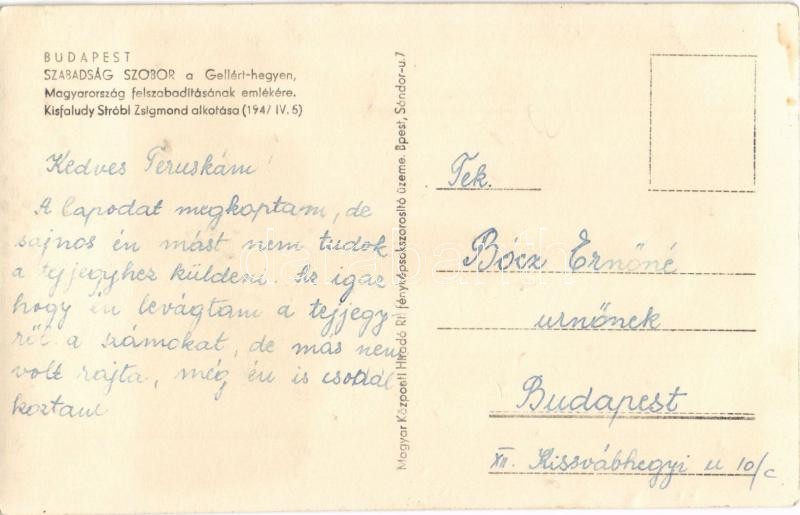 BUDAPEST
SZABADSÁG SZOBOR a Gellért-hegyen,
Magyarország felszabadításának emlékére.
Kisfaludy Stróbl Zsigmond alkotása (1947 IV. 5)
Kedves Teruskám!
A lapodat megkaptam, de
sajnos én mást nem tudok
a tejjegyhez küldeni. Az igaz
hogy én levágtam a tejjegy-
ről a számokat, de más nem
volt rajta, még én is csodál
koztam
Magyar Központi Híradó Rt. fényképsokszorosító üzeme. Bpest, Sándor-u. 7
Tek.
Bócz Ernőné
urnőnek
Budapest
XII. Kissvábhegyi u 10/c.